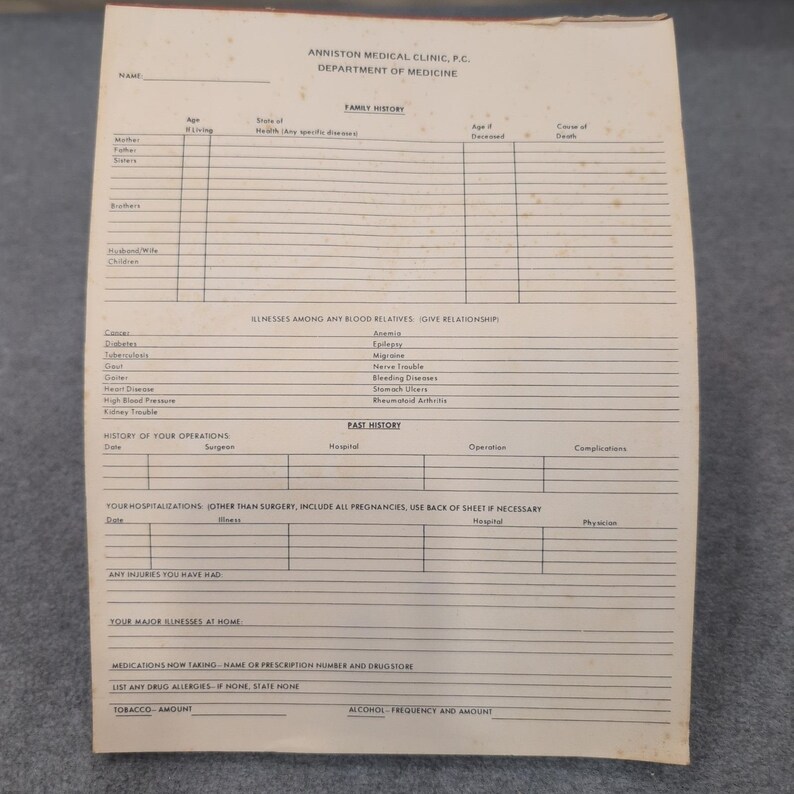 ANNISTON MEDICAL CLINIC, P.C.
DEPARTMENT OF MEDICINE
NAME:
FAMILY HISTORY
Age If Living
State of Health (Any specific diseases)
Age if Deceased
Cause of Death
Mother
Father
Sisters
Brothers
Husband/Wife
Children
ILLNESSES AMONG ANY BLOOD RELATIVES: (GIVE RELATIONSHIP)
Cancer Anemia
Diabetes Epilepsy
Tuberculosis Migraine
Gout Nerve Trouble
Goiter Bleeding Diseases
Heart Disease Stomach Ulcers
High Blood Pressure Rheumatoid Arthritis
Kidney Trouble
PAST HISTORY
HISTORY OF YOUR OPERATIONS:
Date Surgeon Hospital Operation Complications
YOUR HOSPITALIZATIONS: (OTHER THAN SURGERY, INCLUDE ALL PREGNANCIES, USE BACK OF SHEET IF NECESSARY
Date Illness Hospital Physician
ANY INJURIES YOU HAVE HAD:
YOUR MAJOR ILLNESSES AT HOME:
MEDICATIONS NOW TAKING—NAME OR PRESCRIPTION NUMBER AND DRUGSTORE
LIST ANY DRUG ALLERGIES—IF NONE, STATE NONE
TOBACCO—AMOUNT ALCOHOL—FREQUENCY AND AMOUNT